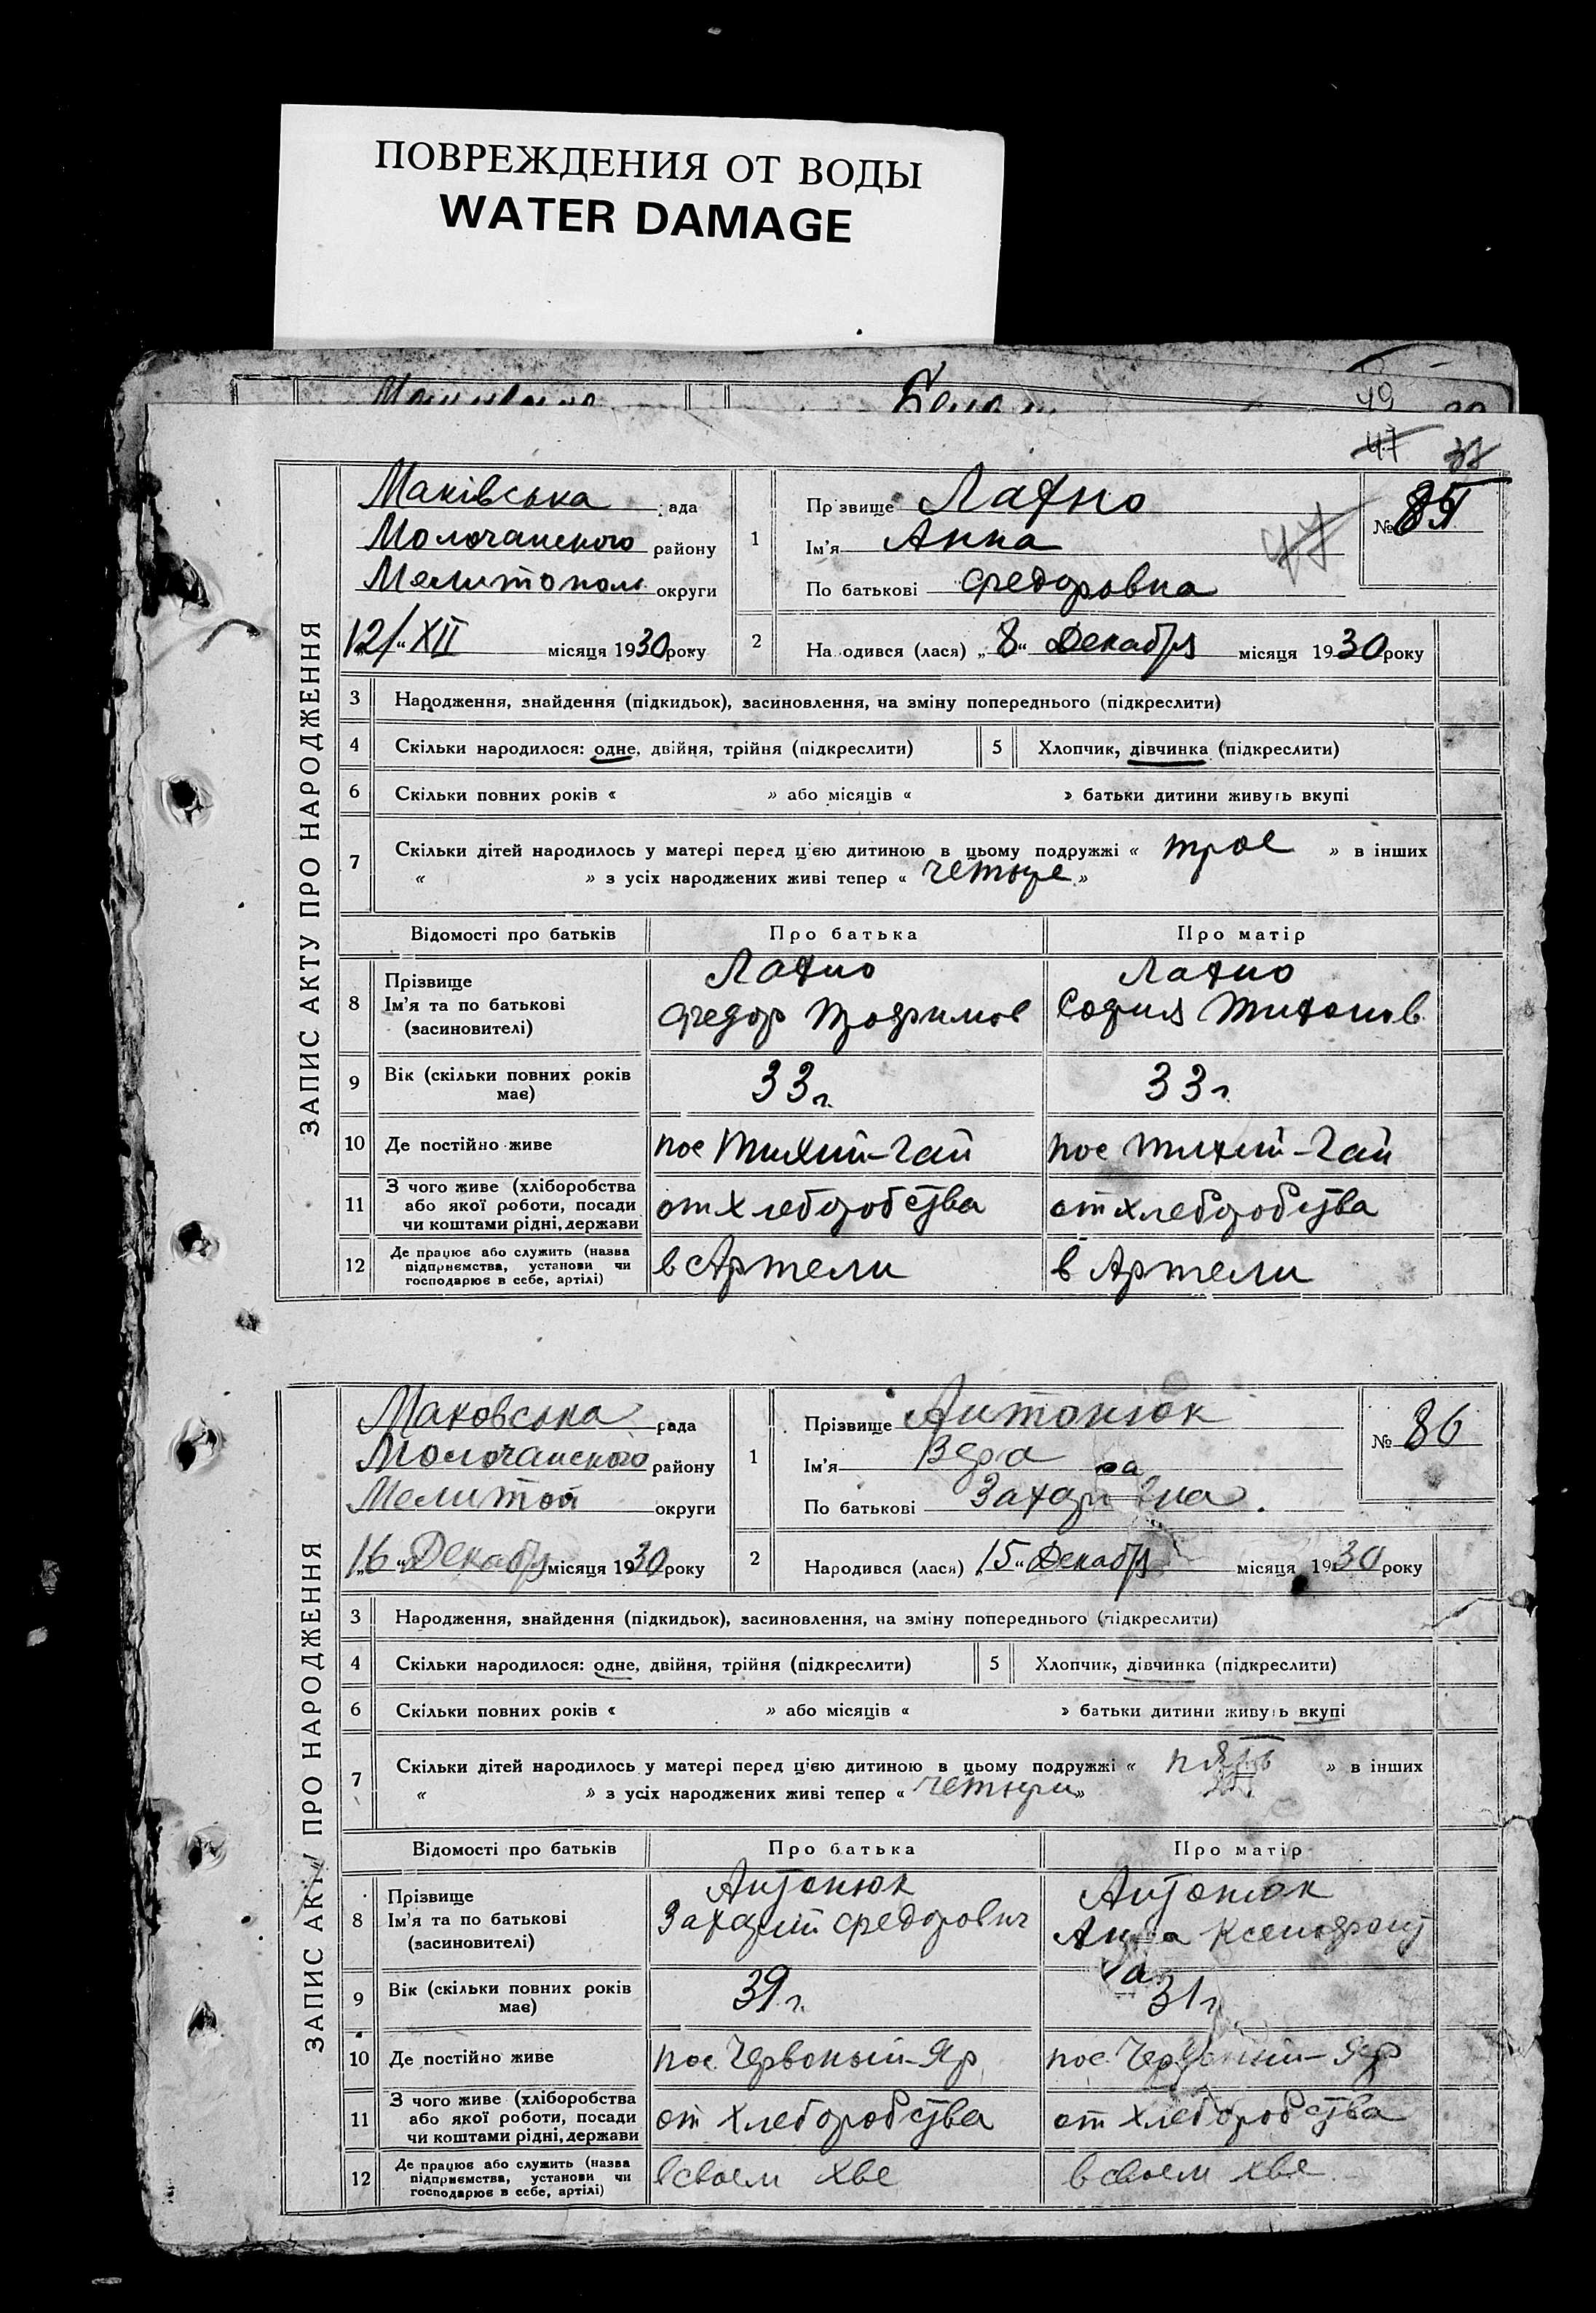 ПОВРЕЖДЕНИЯ ОТ ВОДЫ
WATER DAMAGE
49
47 37
ЗАПИС АКТУ ПРО НАРОДЖЕННЯ
Маківська рада
Молочанського району
Мелитополь округи
"12/" XII місяця 1930 року
1
Прізвище Лахно
Ім'я Анна
По батькові Федоровна
47
№ 85
2
Народився (лася) „8" Декабря місяця 1930 року
3 Народження, знайдення (підкидьок), засиновлення, на зміну попереднього (підкреслити)
4 Скільки народилося: одне, двійня, трійня (підкреслити) 5 Хлопчик, дівчинка (підкреслити)
6 Скільки повних років « » або місяців « » батьки дитини живуть вкупі
7 Скільки дітей народилось у матері перед ц'єю дитиною в цьому подружжі « трое » в інших
« » з усіх народжених живі тепер « четыре »
Відомості про батьків Про батька Про матір
8 Прізвище Ім'я та по батькові (засиновителі)
Лахно Лахно
Федор Трофимов София Тихонов.
9 Вік (скільки повних років має) 33 г. 33 г.
10 Де постійно живе пос Тихий-Гай пос Тихий-Гай
11 З чого живе (хліборобства або якої роботи, посади чи коштами рідні, держави от хлеборобства от хлеборобства
12 Де працює або служить (назва підприємства, установи чи господарює в себе, артілі) в Артели в Артели
ЗАПИС АКТУ ПРО НАРОДЖЕННЯ
Маковська рада
Молочанского району
Мелитоп округи
„16" Декабр місяця 1930 року
1
Прізвище Антонюк
Ім'я Вера
По батькові Захаровна.
№ 86
2
Народився (лася) „15" Декабря місяця 1930 року
3 Народження, знайдення (підкидьок), засиновлення, на зміну попереднього (підкреслити)
4 Скільки народилося: одне, двійня, трійня (підкреслити) 5 Хлопчик, дівчинка (підкреслити)
6 Скільки повних років « » або місяців « » батьки дитини живуть вкупі
7 Скільки дітей народилось у матері перед ц'єю дитиною в цьому подружжі « пять » в інших
« » з усіх народжених живі тепер « четыри »
Відомості про батьків Про батька Про матір
8 Прізвище Ім'я та по батькові (засиновителі)
Антонюк Антонюк
Захарий Федорович Анна Ксенофонт
9 Вік (скільки повних років має) 39 г. 31 г
10 Де постійно живе пос. Червоный-Яр пос. Червоный-Яр
11 З чого живе (хліборобства або якої роботи, посади чи коштами рідні, держави от хлеборобства от хлеборобства
12 Де працює або служить (назва підприємства, установи чи господарює в себе, артілі) в своем хве в своем хве